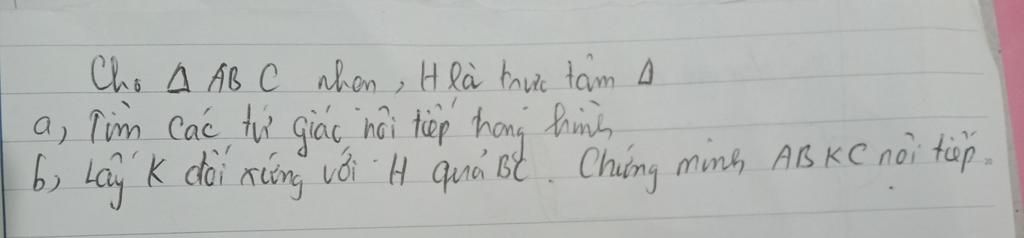 Cho Δ ABC nhọn, H là trực tâm Δ
a, Tìm các tứ giác nội tiếp trong hình
b, Lấy K đối xứng với H qua BC. Chứng minh ABKC nội tiếp.